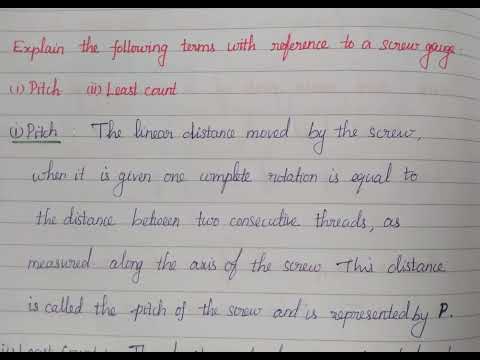 Explain the following terms with reference to a screw gauge.
(i) Pitch (ii) Least count
(i) Pitch : The linear distance moved by the screw,
when it is given one complete rotation is equal to
the distance between two consecutive threads, as
measured along the axis of the screw This distance
is called the pitch of the screw and is represented by P.